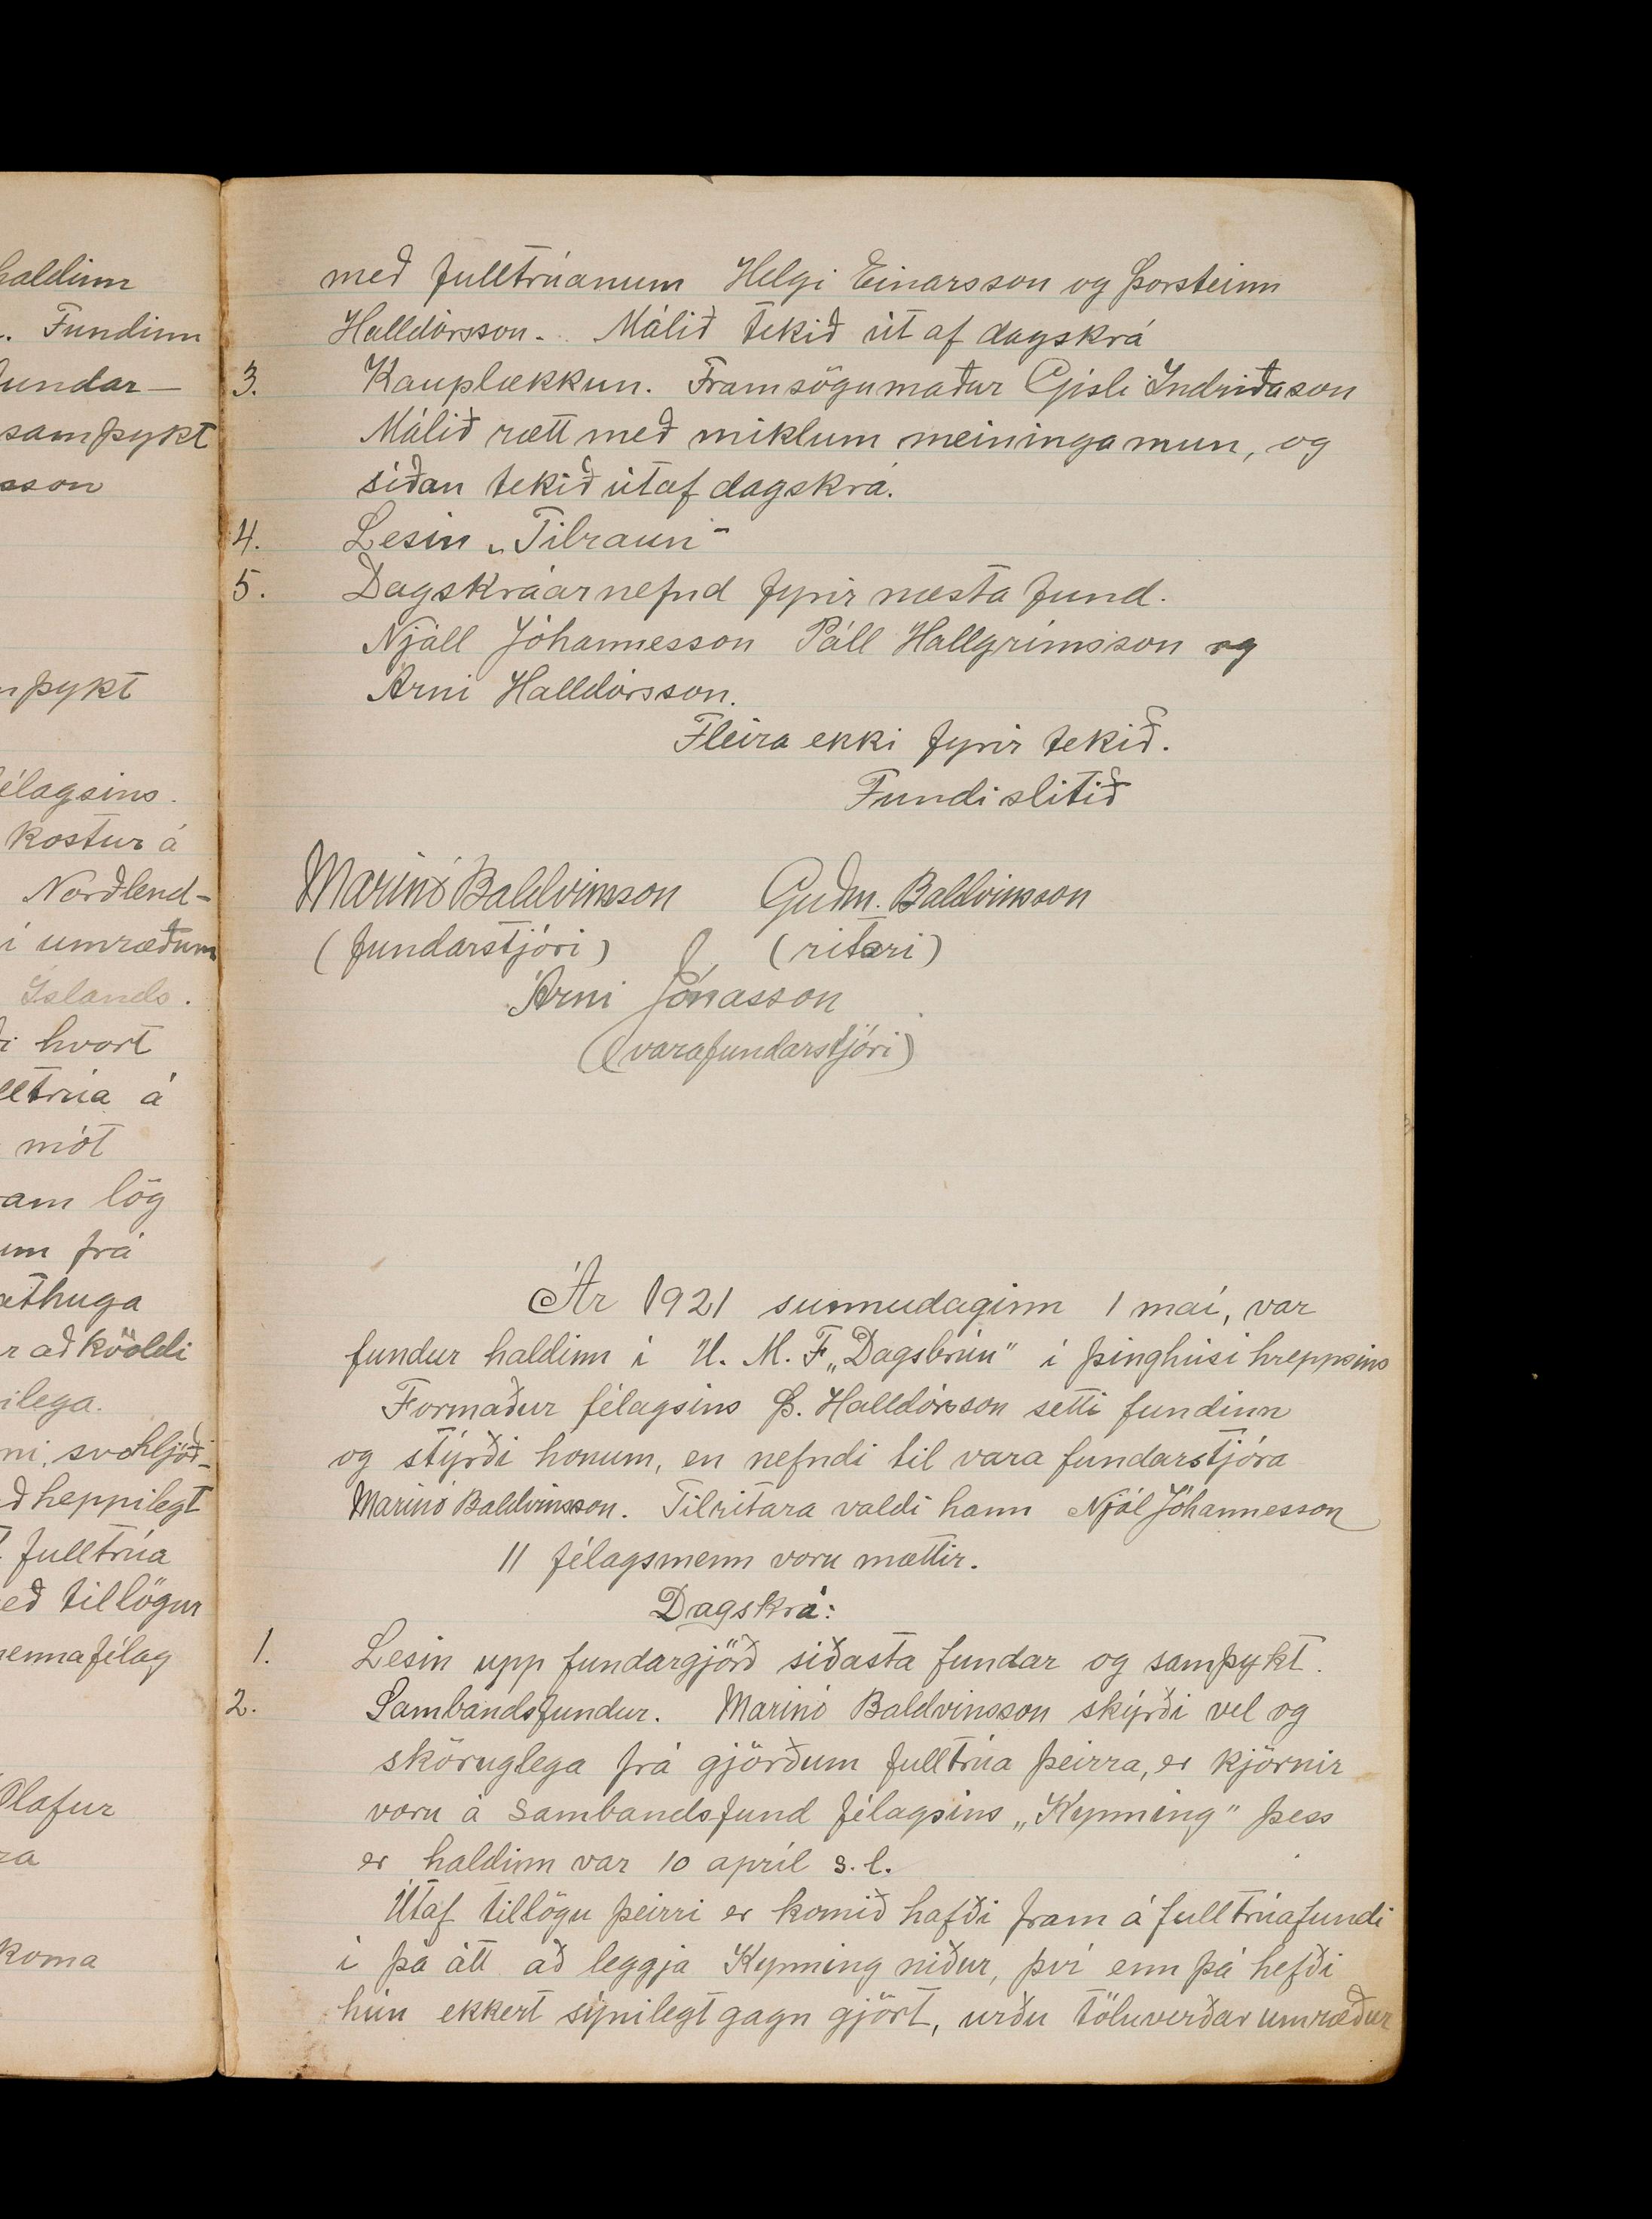 haldinn
. Fundinn
fundar-
samþykt
sson
þykt
félagsins.
kostur á
Norðlend-
í umræðum
Íslands.
hvort
lltrúa á
mót
ram lög
um frá
athuga
r að kvöldi
ilega.
ni, svohljóð-
ð heppilegt
fulltrúa
eð tillögur
mennafélag
Olafur
ra
koma
með fulltrúanum Helgi Einarsson og Þorsteinn
Halldórsson. Málið tekið út af dagskrá
3. Kauplækkun. Framsögumaður Gísli Indriðason
Málið rætt með miklum meiningamun, og
síðan tekið útaf dagskrá.
4. Lesin „Tilraun"
5. Dagskráarnefnd fyrir næsta fund.
Njáll Jóhannesson Páll Hallgrímsson og
Árni Halldórsson.
Fleira ekki fyrir tekið.
Fundi slitið
Marinó Baldvinsson Guðm. Baldvinsson
(fundarstjóri) (ritari)
Árni Jónasson
(varafundarstjóri)
Ár 1921 sunnudaginn 1 maí, var
fundur haldinn í U. M. F „Dagsbrún" í þinghúsi hreppsins
Formaður félagsins Þ. Halldórsson setti fundinn
og stýrði honum, en nefndi til vara fundarstjóra
Marinó Baldvinsson. Til ritara valdi hann Njál Jóhannesson
11 félagsmenn voru mættir.
Dagskrá:
1. Lesin upp fundargjörð síðasta fundar og samþykt.
2. Sambandsfundur. Marinó Baldvinsson skýrði vel og
sköruglega frá gjörðum fulltrúa þeirra, er kjörnir
voru á sambandsfund félagsins „Kynning" þess
er haldinn var 10 apríl s.l.
Útaf tillögu þeirri er komið hafði fram á fulltrúafundi
í þá átt að leggja Kynning niður, því enn þá hefði
hún ekkert sýnilegt gagn gjört, urðu töluverðar umræður